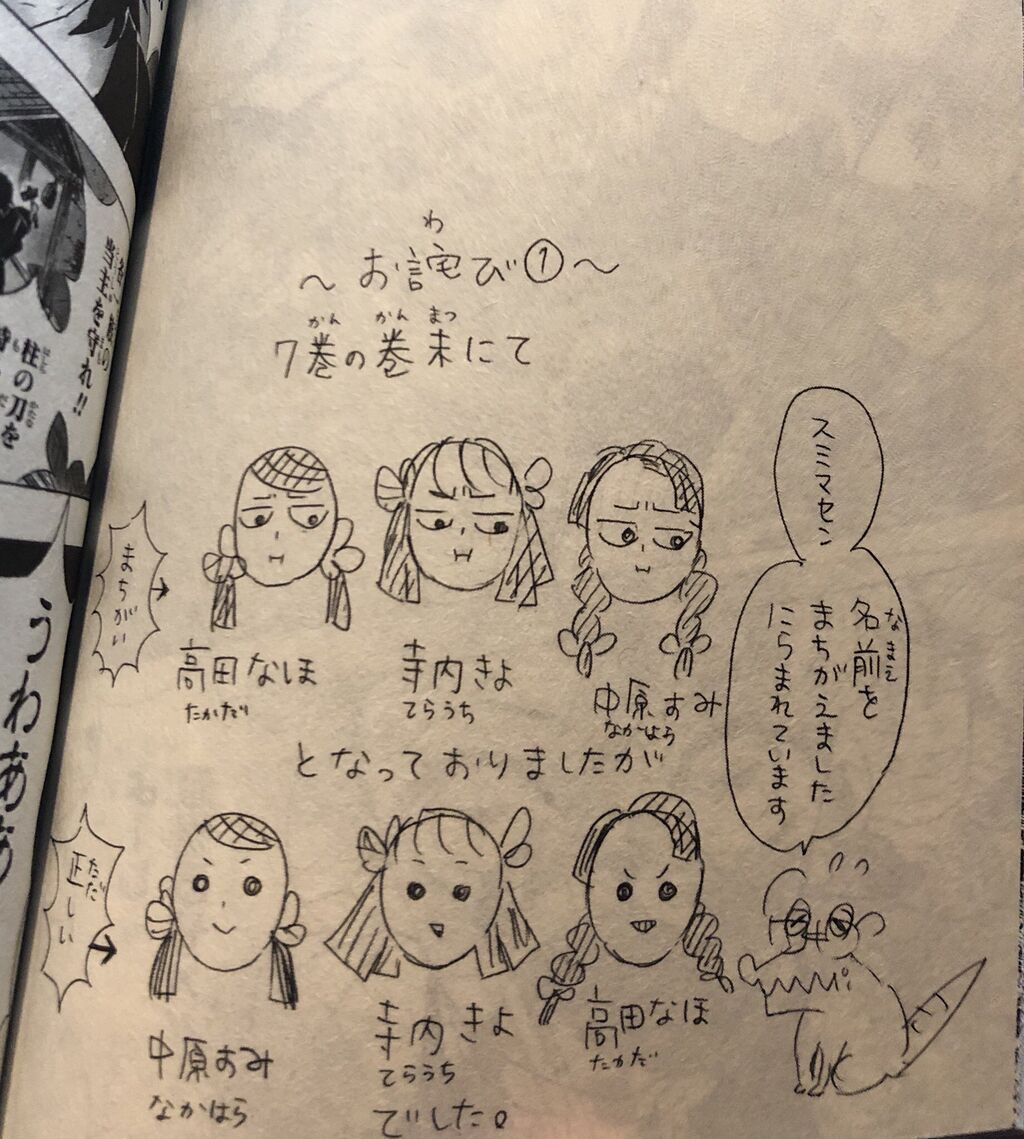 ～お詫び①～
わ
7巻の巻末にて
かん かん まつ
まちがい→
高田なほ
たかだ
寺内きよ
てらうち
中原すみ
なかはら
となっておりましたが
正しい→
ただ
中原すみ
なかはら
寺内きよ
てらうち
でした。
高田なほ
たかだ
スミマセン
名前を
なまえ
まちがえました
にらまれています
当主を守れ!!
柱の刀を
はしら かたな
うわああ